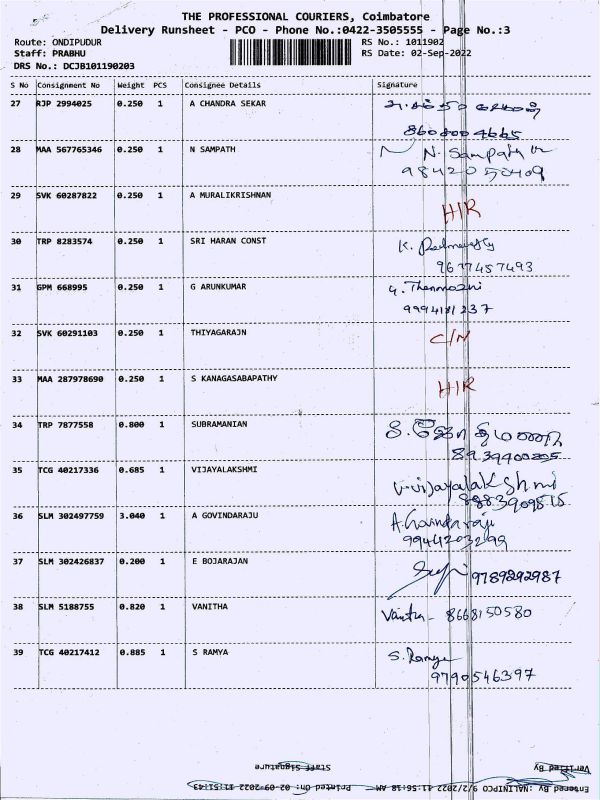 THE PROFESSIONAL COURIERS, Coimbatore
Delivery Runsheet - PCO - Phone No.:0422-3505555 - Page No.:3
Route: ONDIPUDUR RS No.: 1011902
Staff: PRABHU RS Date: 02-Sep-2022
DRS No.: DCJB101190203
S No Consignment No Weight PCS Consignee Details Signature
27 RJP 2994025 0.250 1 A CHANDRA SEKAR
28 MAA 567765346 0.250 1 N SAMPATH N. Sampath
9842050409
29 SVK 60287822 0.250 1 A MURALIKRISHNAN H/R
30 TRP 8283574 0.250 1 SRI HARAN CONST K.
9677457493
31 GPM 668995 0.250 1 G ARUNKUMAR G. Thenmozhi
9994181237
32 SVK 60291103 0.250 1 THIYAGARAJN C/N
33 MAA 287978690 0.250 1 S KANAGASABAPATHY H/R
34 TRP 7877558 0.800 1 SUBRAMANIAN
35 TCG 40217336 0.685 1 VIJAYALAKSHMI V.Vijayalakshmi
36 SLM 302497759 3.040 1 A GOVINDARAJU A.Govindaraju
9944203299
37 SLM 302426837 0.200 1 E BOJARAJAN 9789292987
38 SLM 5188755 0.820 1 VANITHA Vanitha - 8668150580
39 TCG 40217412 0.885 1 S RAMYA S. Ramya
9790546397
Staff Signature Verified By
Entered By: NALINIPCO 9/2/2022 11:56:18 AM Printed On: 02-09-2022 11:51:43